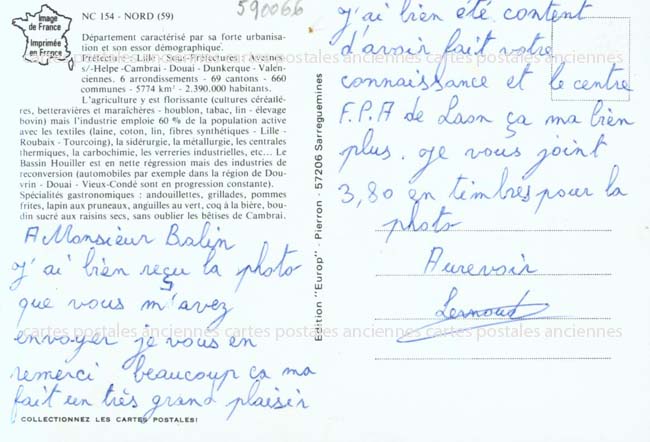 Image
de France
Imprimée
en France
NC 154 - NORD (59)
590066
Département caractérisé par sa forte urbanisa-
tion et son essor démographique.
Préfecture : Lille - Sous-Préfectures : Avesnes
s/-Helpe -Cambrai - Douai - Dunkerque - Valen-
ciennes. 6 arrondissements - 69 cantons - 660
communes - 5774 km² - 2.390.000 habitants.
L'agriculture y est florissante (cultures céréaliè-
res, betteravières et maraîchères - houblon, tabac, lin - élevage
bovin) mais l'industrie emploie 60 % de la population active
avec les textiles (laine, coton, lin, fibres synthétiques - Lille -
Roubaix - Tourcoing), la sidérurgie, la métallurgie, les centrales
thermiques, la carbochimie, les verreries industrielles, etc... Le
Bassin Houiller est en nette régression mais des industries de
reconversion (automobiles par exemple dans la région de Dou-
vrin - Douai - Vieux-Condé sont en progression constante).
Spécialités gastronomiques : andouillettes, grillades, pommes
frites, lapin aux pruneaux, anguilles au vert, coq à la bière, bou-
din sucré aux raisins secs, sans oublier les bêtises de Cambrai.
A Monsieur Balin
j'ai bien reçu la photo
que vous m'avez
envoyer je vous en
remerci beaucoup ça ma
fait un très grand plaisir
COLLECTIONNEZ LES CARTES POSTALES!
Edition "Europ" - Pierron - 57206 Sarreguemines
j'ai bien été content
d'avoir fait votre
connaissance et le centre
F.P.A de Laon ça ma bien
plus. je vous joint
3,80 en timbres pour la
photo
Aurevoir
Lernoud
cartes postales anciennes cartes postales anciennes cartes postales anciennes